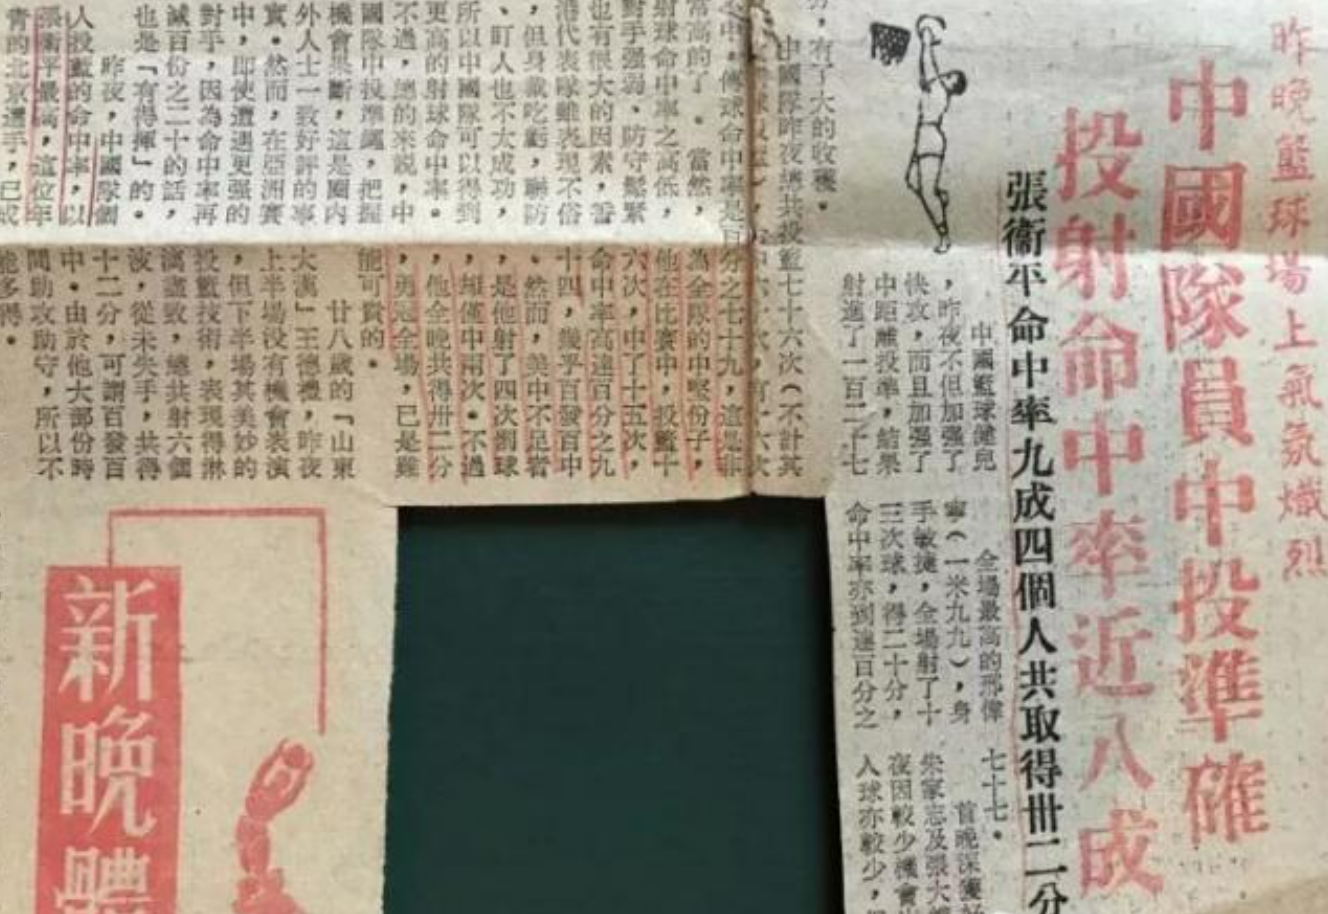 昨晚籃球場上氣氛熾烈
中國隊員中投準確
投射命中率近八成
張衞平命中率九成四個人共取得卅二分
中國籃球健兒
，昨夜不但加强了
快攻，而且加强了
中距離投準，結果
射進了一百二十七
分，有了大的收穫。
中國隊昨夜總共投籃七十六次（不計其
之中，傳球命中率是百分之七十九，這是非
常高的了。當然，
射球命中率之高低，
對手强弱、防守鬆緊
也有很大的因素，香
港代表隊雖表現不俗
，但身裁吃虧，聯防
、盯人也不太成功，
所以中國隊可以得到
更高的射球命中率。
不過，總的來説，中
國隊中投準繩，把握
機會果斷，這是圈内
外人士一致好評的事
實。然而，在亞洲賽
中，即使遭遇更强的
對手，因為命中率再
減百份之二十的話，
也是「有得揮」的。
昨夜，中國隊個
人投籃的命中率，以
張衞平最高，這位年
青的北京選手，已成
為全隊的中堅份子，
他在比賽中，投籃十
六次，中了十五次，
命中率高達百分之九
十四，幾乎百發百中
。然而，美中不足者
，是他射了四次罰球
，却僅中兩次。不過
，他全晚共得卅二分
，勇冠全場，已是難
能可貴的。
廿八歲的「山東
大漢」王德禮，昨夜
上半場没有機會表演
，但下半場其美妙的
投籃技術，表現得淋
漓盡致，總共射六個
波，從未失手，共得
十二分，可謂百發百
中。由於他大部份時
間助攻助守，所以不
能多得。
全場最高的邢偉
寧（一米九九），身
手敏捷，全場射了十
三次球，得二十分，
命中率亦到達百分之
七十七。
首晚深獲好
朱家志及張大維
夜因較少機會出
入球亦較少，
新晚體